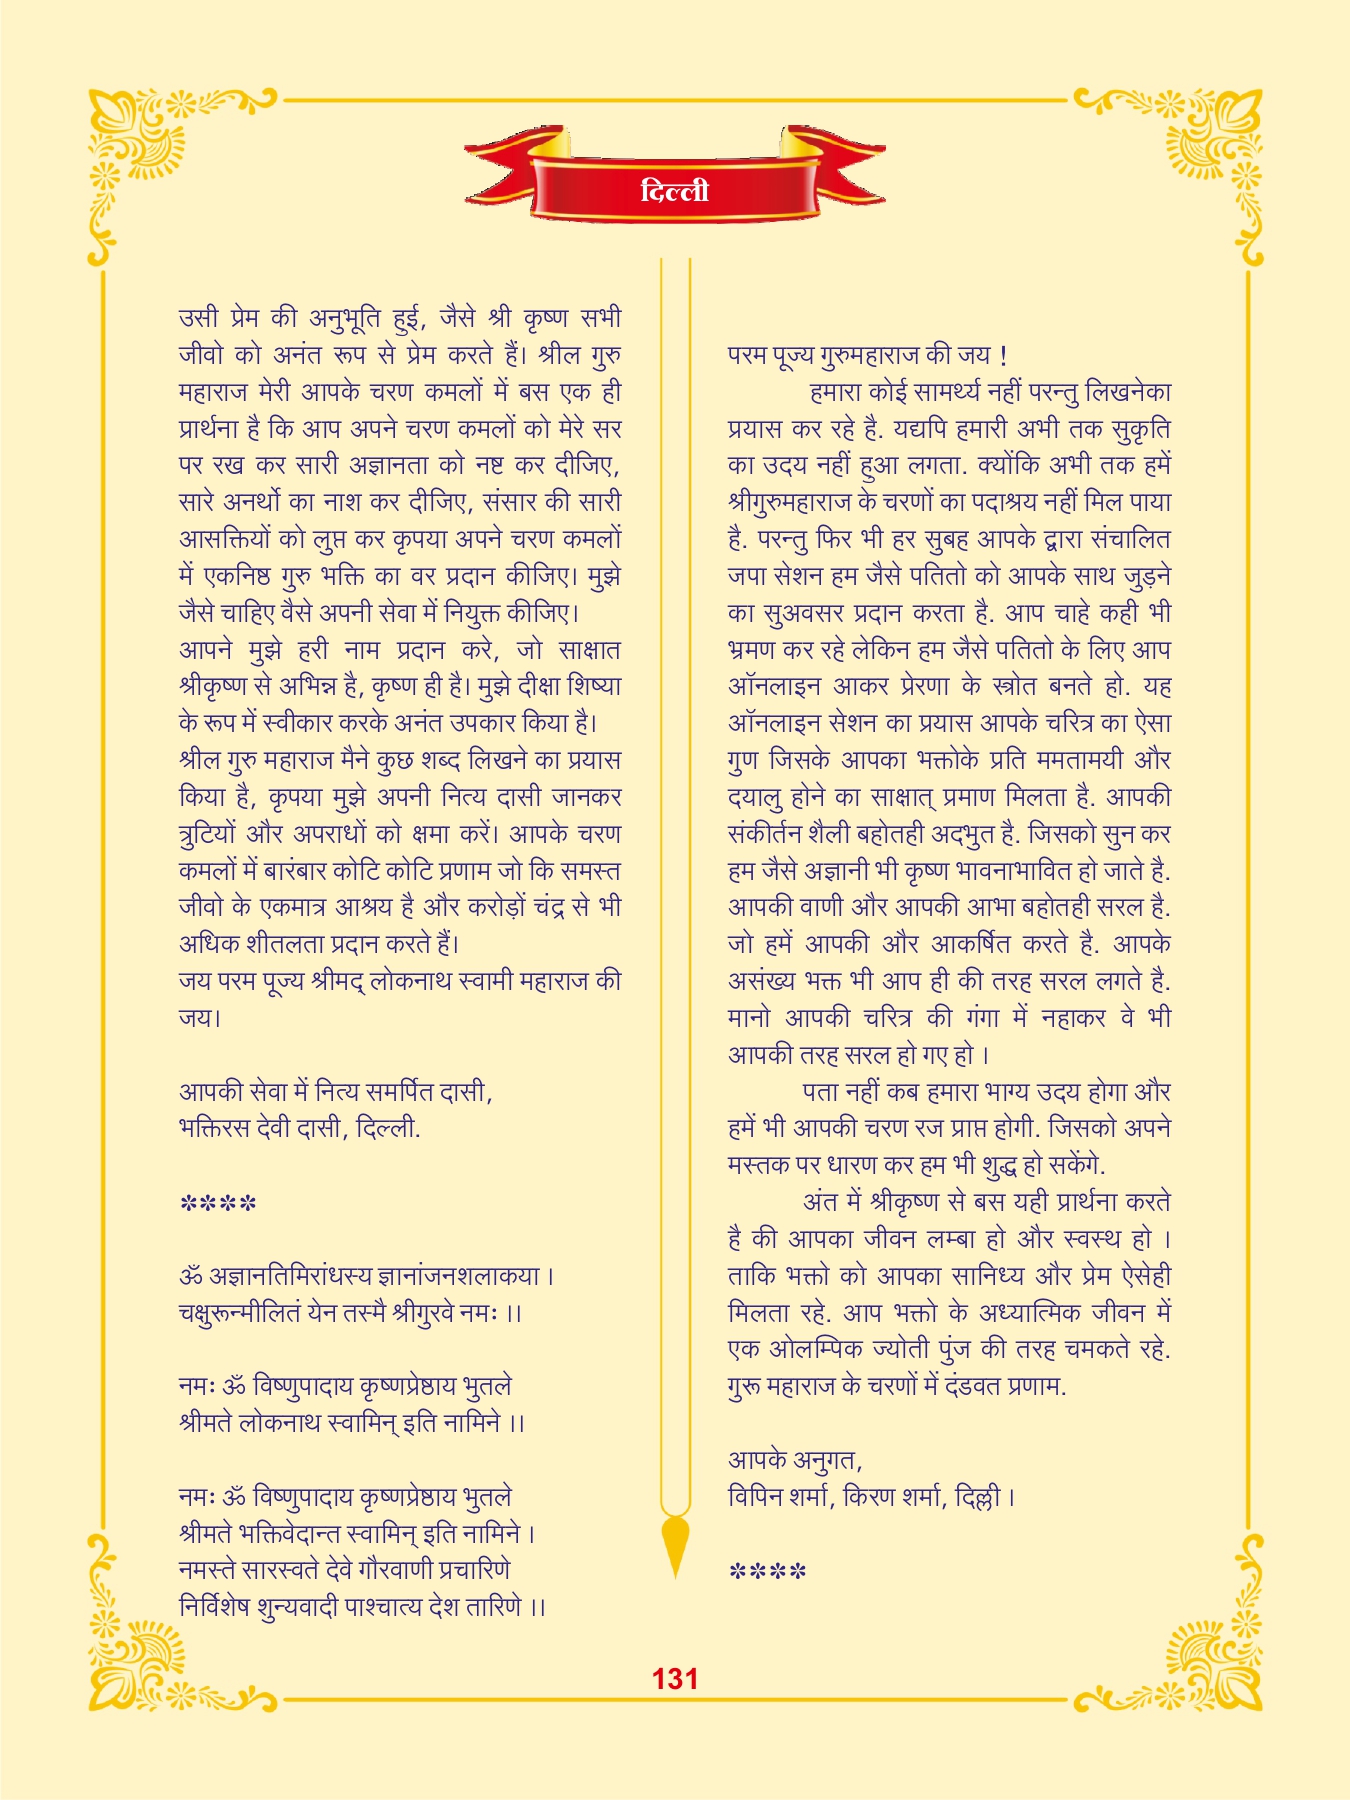 दिल्ली
उसी प्रेम की अनुभूति हुई, जैसे श्री कृष्ण सभी
जीवो को अनंत रूप से प्रेम करते हैं। श्रील गुरु
महाराज मेरी आपके चरण कमलों में बस एक ही
प्रार्थना है कि आप अपने चरण कमलों को मेरे सर
पर रख कर सारी अज्ञानता को नष्ट कर दीजिए,
सारे अनर्थो का नाश कर दीजिए, संसार की सारी
आसक्तियों को लुप्त कर कृपया अपने चरण कमलों
में एकनिष्ठ गुरु भक्ति का वर प्रदान कीजिए। मुझे
जैसे चाहिए वैसे अपनी सेवा में नियुक्त कीजिए।
आपने मुझे हरी नाम प्रदान करे, जो साक्षात
श्रीकृष्ण से अभिन्न है, कृष्ण ही है। मुझे दीक्षा शिष्या
के रूप में स्वीकार करके अनंत उपकार किया है।
श्रील गुरु महाराज मैने कुछ शब्द लिखने का प्रयास
किया है, कृपया मुझे अपनी नित्य दासी जानकर
त्रुटियों और अपराधों को क्षमा करें। आपके चरण
कमलों में बारंबार कोटि कोटि प्रणाम जो कि समस्त
जीवो के एकमात्र आश्रय है और करोड़ों चंद्र से भी
अधिक शीतलता प्रदान करते हैं।
जय परम पूज्य श्रीमद् लोकनाथ स्वामी महाराज की
जय।
आपकी सेवा में नित्य समर्पित दासी,
भक्तिरस देवी दासी, दिल्ली.
****
ॐ अज्ञानतिमिरांधस्य ज्ञानांजनशलाकया ।
चक्षुरून्मीलितं येन तस्मै श्रीगुरवे नमः ।।
नमः ॐ विष्णुपादाय कृष्णप्रेष्ठाय भुतले
श्रीमते लोकनाथ स्वामिन् इति नामिने ।।
नमः ॐ विष्णुपादाय कृष्णप्रेष्ठाय भुतले
श्रीमते भक्तिवेदान्त स्वामिन् इति नामिने ।
नमस्ते सारस्वते देवे गौरवाणी प्रचारिणे
निर्विशेष शुन्यवादी पाश्चात्य देश तारिणे ।।
परम पूज्य गुरुमहाराज की जय !
हमारा कोई सामर्थ्य नहीं परन्तु लिखनेका
प्रयास कर रहे है. यद्यपि हमारी अभी तक सुकृति
का उदय नहीं हुआ लगता. क्योंकि अभी तक हमें
श्रीगुरुमहाराज के चरणों का पदाश्रय नहीं मिल पाया
है. परन्तु फिर भी हर सुबह आपके द्वारा संचालित
जपा सेशन हम जैसे पतितो को आपके साथ जुड़ने
का सुअवसर प्रदान करता है. आप चाहे कही भी
भ्रमण कर रहे लेकिन हम जैसे पतितो के लिए आप
ऑनलाइन आकर प्रेरणा के स्त्रोत बनते हो. यह
ऑनलाइन सेशन का प्रयास आपके चरित्र का ऐसा
गुण जिसके आपका भक्तोके प्रति ममतामयी और
दयालु होने का साक्षात् प्रमाण मिलता है. आपकी
संकीर्तन शैली बहोतही अदभुत है. जिसको सुन कर
हम जैसे अज्ञानी भी कृष्ण भावनाभावित हो जाते है.
आपकी वाणी और आपकी आभा बहोतही सरल है.
जो हमें आपकी और आकर्षित करते है. आपके
असंख्य भक्त भी आप ही की तरह सरल लगते है.
मानो आपकी चरित्र की गंगा में नहाकर वे भी
आपकी तरह सरल हो गए हो ।
पता नहीं कब हमारा भाग्य उदय होगा और
हमें भी आपकी चरण रज प्राप्त होगी. जिसको अपने
मस्तक पर धारण कर हम भी शुद्ध हो सकेंगे.
अंत में श्रीकृष्ण से बस यही प्रार्थना करते
है की आपका जीवन लम्बा हो और स्वस्थ हो ।
ताकि भक्तो को आपका सानिध्य और प्रेम ऐसेही
मिलता रहे. आप भक्तो के अध्यात्मिक जीवन में
एक ओलम्पिक ज्योती पुंज की तरह चमकते रहे.
गुरू महाराज के चरणों में दंडवत प्रणाम.
आपके अनुगत,
विपिन शर्मा, किरण शर्मा, दिल्ली ।
****
131